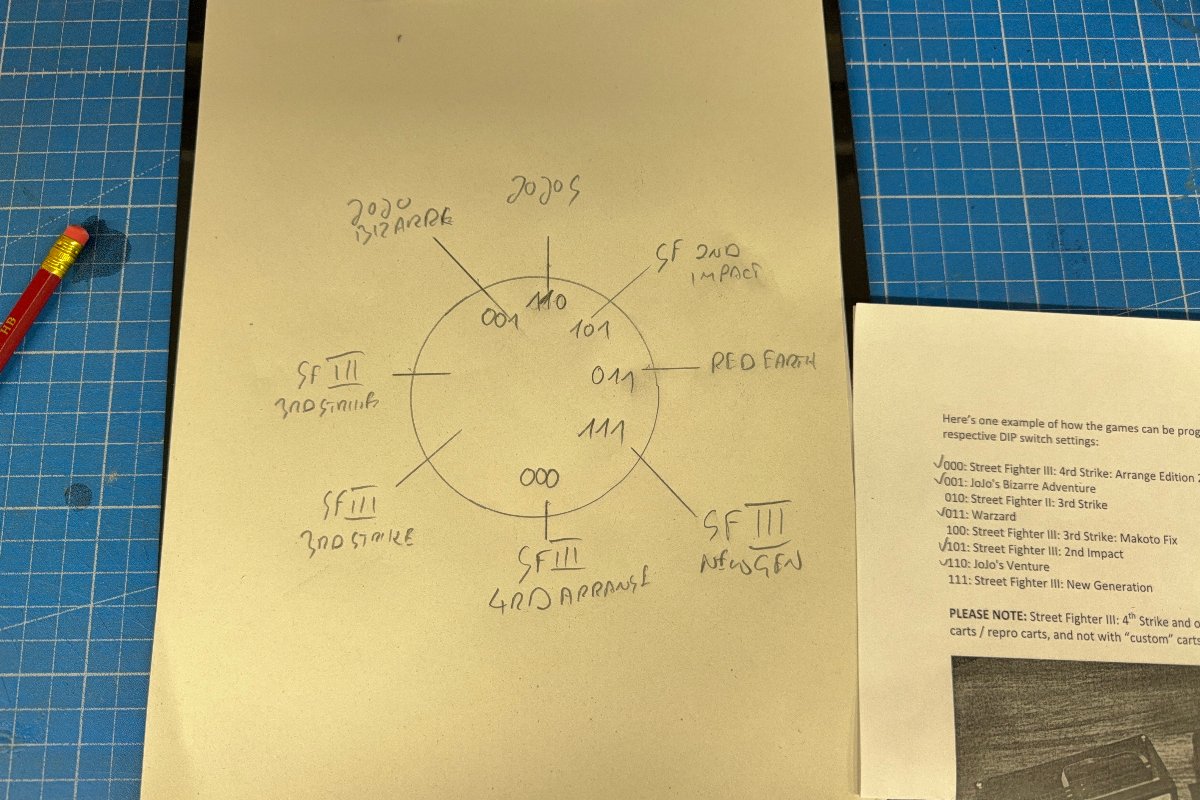 JOJOS
JOJO
BIZARRE
SF 2ND
IMPACT
110
001
101
RED EARTH
011
SF III
3RD STRIKE
111
000
SF III
3RD STRIKE
SF III
NEWGEN
SF III
4RD ARRANGE
HB
Here's one example of how the games can be prog
respective DIP switch settings:
✓000: Street Fighter III: 4rd Strike: Arrange Edition 2
✓001: JoJo's Bizarre Adventure
010: Street Fighter II: 3rd Strike
✓011: Warzard
100: Street Fighter III: 3rd Strike: Makoto Fix
✓101: Street Fighter III: 2nd Impact
✓110: JoJo's Venture
111: Street Fighter III: New Generation
PLEASE NOTE: Street Fighter III: 4th Strike and o
carts / repro carts, and not with "custom" carts